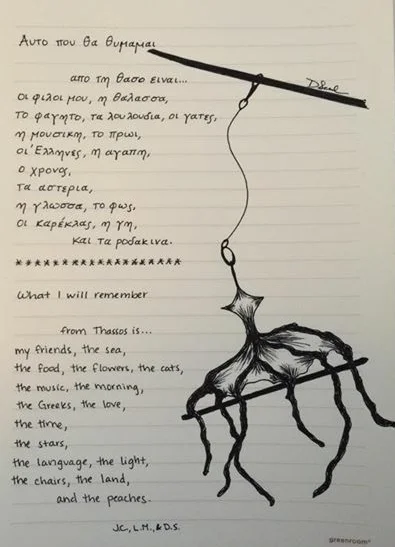 Αυτο που θα θυμαμαι
απο τη θασο ειναι...
οι φιλοι μου, η θαλασσα,
το φαγητο, τα λουλουδια, οι γατες,
η μουσικη, το πρωι,
οι Έλληνες, η αγαπη,
ο χρονος,
τα αστερια,
η γλωσσα, το φως,
οι καρέκλας, η γη,
και τα ροδακινα.
*******************
What I will remember
from Thassos is...
my friends, the sea,
the food, the flowers, the cats,
the music, the morning,
the Greeks, the love,
the time,
the stars,
the language, the light,
the chairs, the land,
and the peaches.
J.C., L.M., & D.S.
greenroom